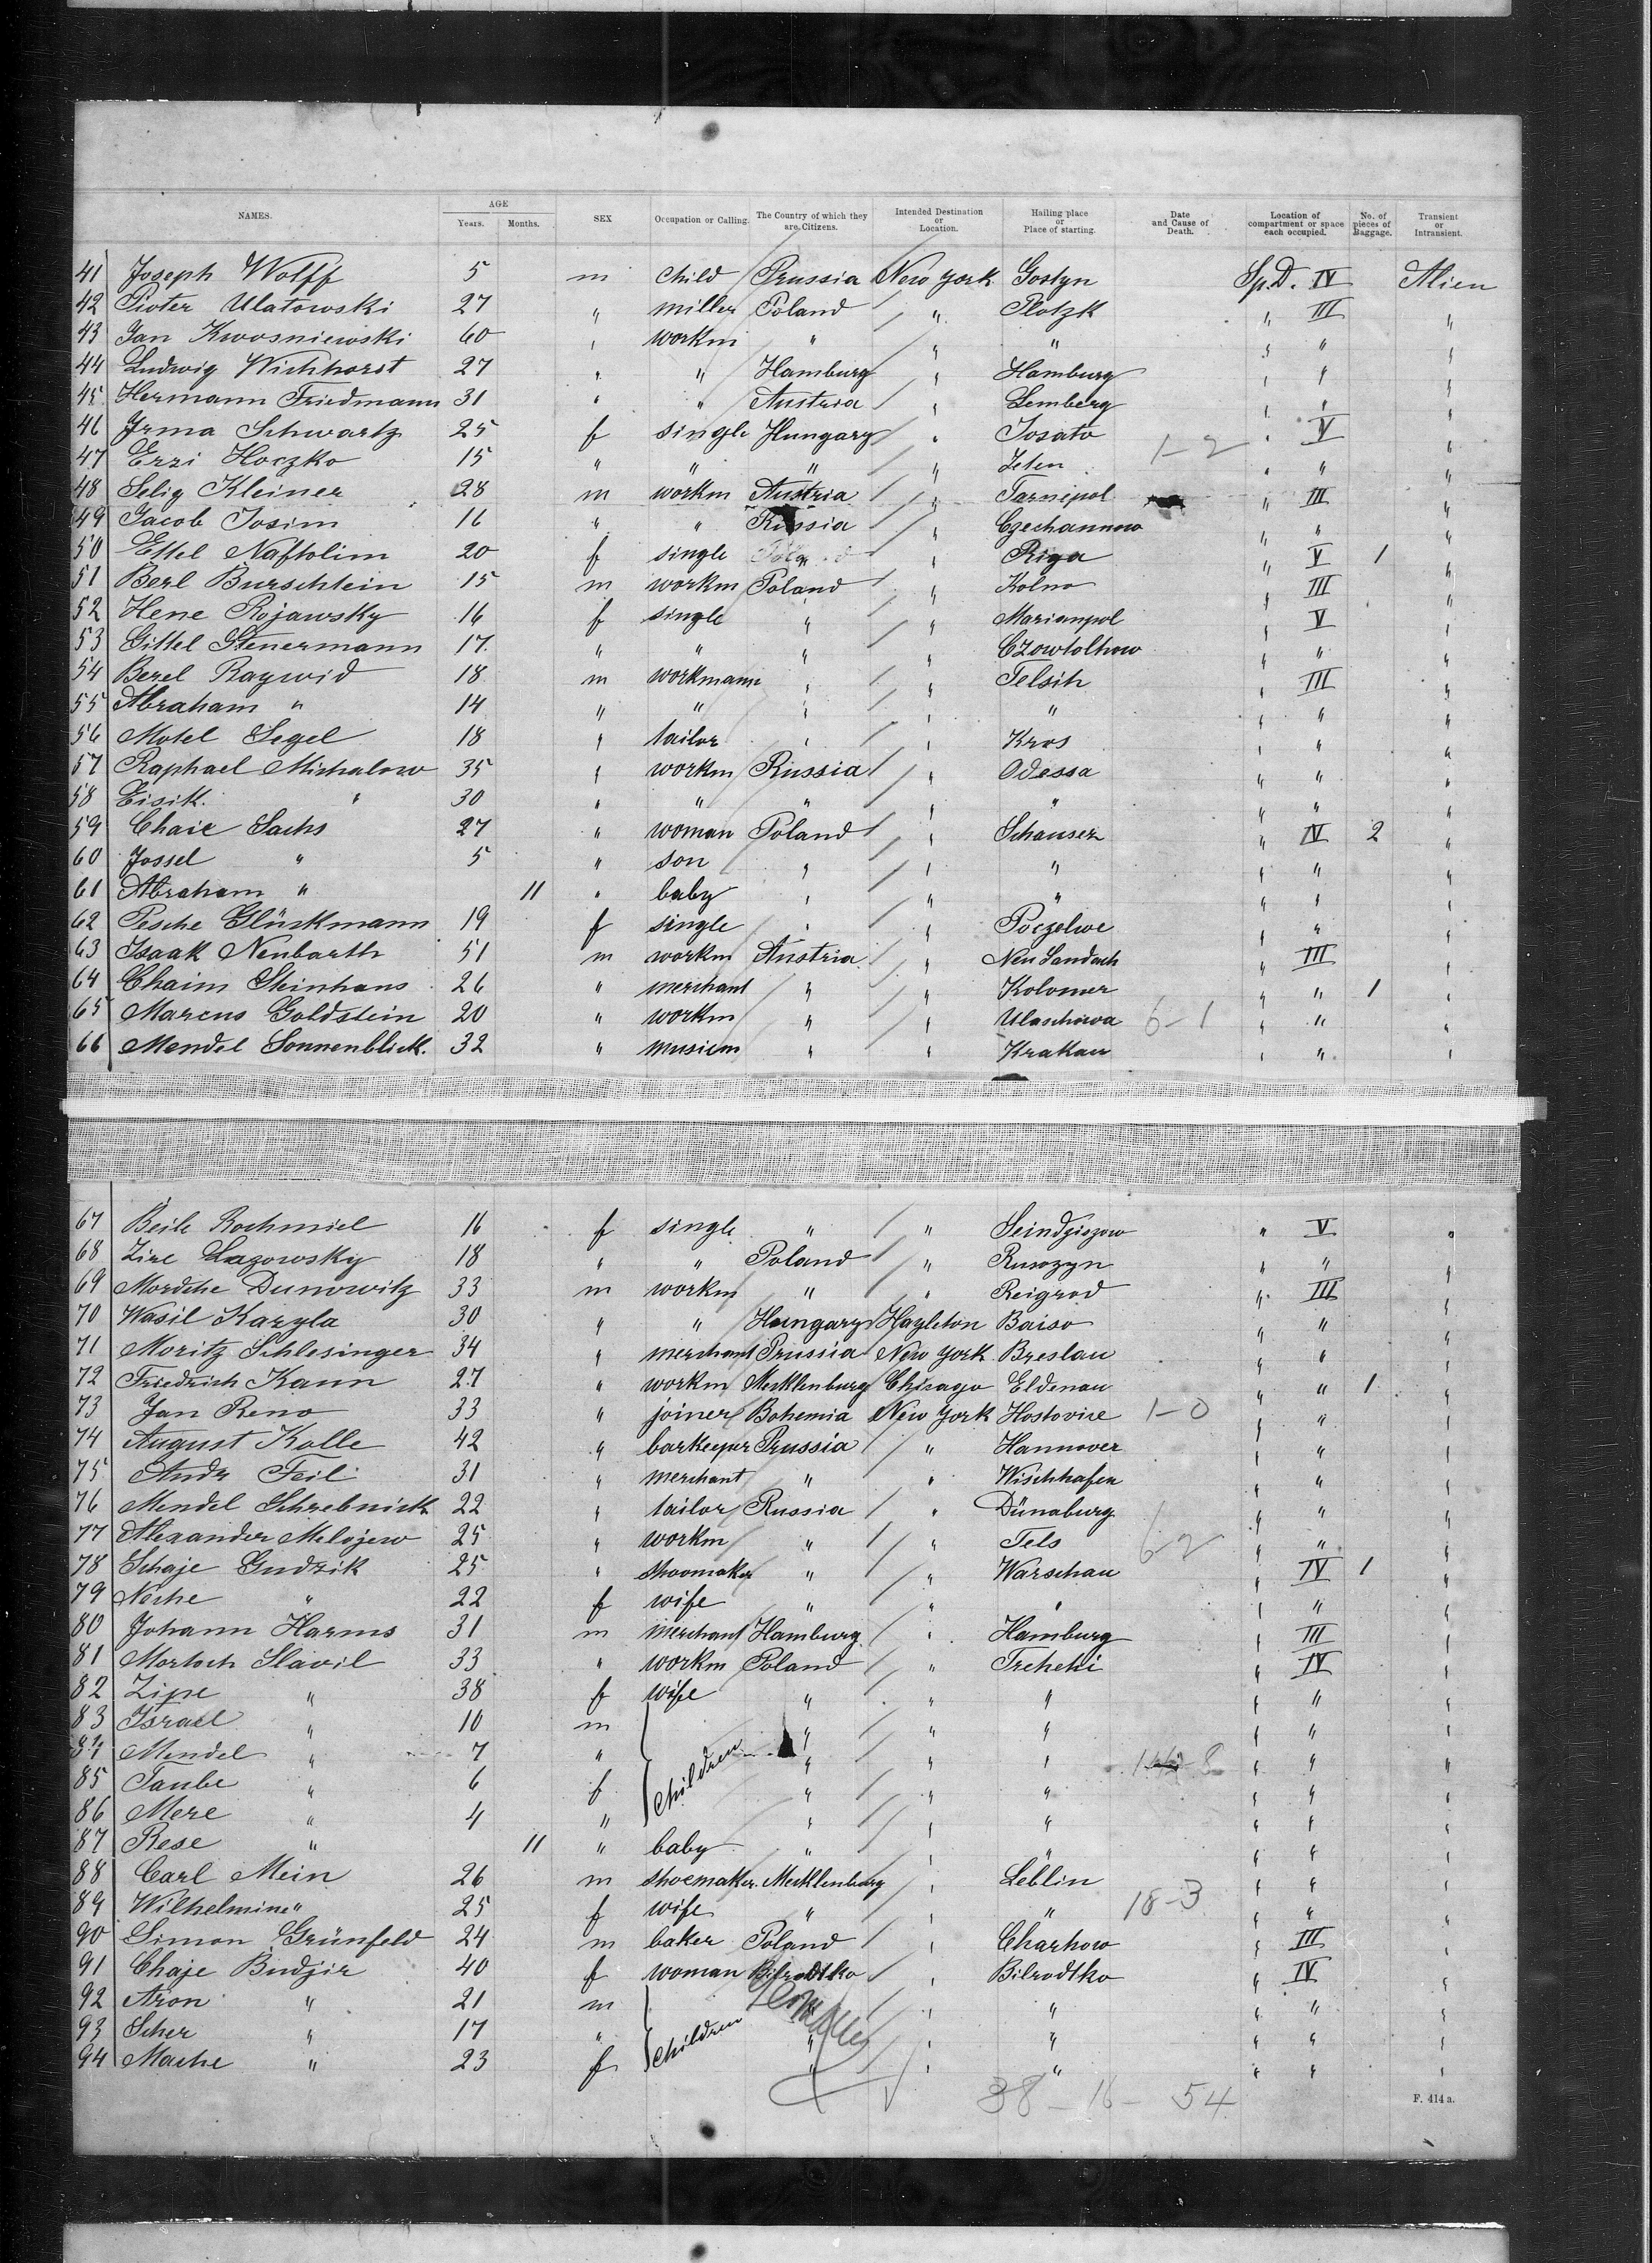 NAMES. AGE Years. Months. SEX Occupation or Calling. The Country of which they are Citizens. Intended Destination or Location. Hailing place or Place of starting. Date and Cause of Death. Location of compartment or space each occupied. No. of pieces of Baggage. Transient or Intransient.
41 Joseph Wolff 5 m child Prussia New York Gostyn Sp.D. IV Alien
42 Pioter Ulatowski 27 " miller Poland " Plotzk " III "
43 Jan Kwosniewski 60 " workm " " " " " "
44 Ludwig Wichhorst 27 " " Hamburg " Hamburg " " "
45 Hermann Friedmann 31 " " Austria " Lemberg " " "
46 Irma Schwartz 25 f single Hungary " Josato 1-2 " V "
47 Erzi Hoczko 15 " " " " Zeten " " "
48 Selig Kleiner 28 m workm Austria " Tarnipol " III "
49 Jacob Josim 16 " " Russia " Czechannow " " "
50 Ettel Naftolim 20 f single " " Riga " V 1 "
51 Berl Burschtein 15 m workm Poland " Kolno " III "
52 Hene Rojawsky 16 f single " " Marianpol " V "
53 Gittel Stenermann 17 " " " " Czowtolhow " " "
54 Berel Raywid 18 m workmann " " Telsih " III "
55 Abraham " 14 " " " " " " " "
56 Motel Segel 18 " tailor " " Kros " " "
57 Raphael Michalow 35 " workm Russia " Odessa " " "
58 Eisik " 30 " " " " " " " "
59 Chaie Sachs 27 " woman Poland " Schauser " IV 2 "
60 Jossel " 5 " son " " " " " "
61 Abraham " 11 " baby " " " " " "
62 Pesche Glückmann 19 f single " " Poczelwe " " "
63 Isaak Neubarth 51 m workm Austria " Neu Sandech " III "
64 Chaim Steinhaus 26 " merchant " " Kolomer " " 1 "
65 Marcus Goldstein 20 " workm " " Ulaschowa 6-1 " " "
66 Mendel Sonnenblick 32 " musicm " " Krakau " " "
67 Beile Rochmiel 16 f single " " Seindziszow " V "
68 Zire Lazowsky 18 " " Poland " Rusozyn " " "
69 Mordche Dunowitz 33 m workm " " Reigrod " III "
70 Wasil Karyla 30 " " Hungary Hazleton Baiso " " "
71 Moritz Schlesinger 34 " merchant Prussia New York Breslau " " "
72 Friedrich Kann 27 " workm Mecklenburg Chicago Eldenau " " 1 "
73 Jan Reno 33 " joiner Bohemia New York Hostovice 1-0 " " "
74 August Kolle 42 " barkeeper Prussia " Hannover " " "
75 Andr Feil 31 " merchant " " Wischhafen " " "
76 Mendel Schrebnick 22 " tailor Russia " Dünaburg " " "
77 Alexander Melojew 25 " workm " " Tels 6-2 " " "
78 Schaje Gudzik 25 " shoomaker " " Warschau " IV 1 "
79 Neche " 22 f wife " " " " " "
80 Johann Harms 31 m merchant Hamburg " Hamburg " III "
81 Mortoch Slavil 33 " workm Poland " Trcheki " IV "
82 Zipe " 38 f wife " " " " " "
83 Israel " 10 m children " " " " " "
84 Mendel " 7 " " " " " " "
85 Taube " 6 f " " " " " "
86 Mere " 4 " " " " " " "
87 Rese " 11 " baby " " " " " "
88 Carl Mein 26 m shoemaker Mecklenburg " Leblin " " "
89 Wilhelmine " 25 f wife " " " 18-3 " " "
90 Simon Grünfeld 24 m baker Poland " Charkow " III "
91 Chaje Budjir 40 f woman Bilrodtko " Bilrodtko " IV "
92 Aron " 21 m children " " " " " "
93 Scher " 17 " " " " " " "
94 Mache " 23 f " " " " " "
38 - 16 - 54
F. 414 a.